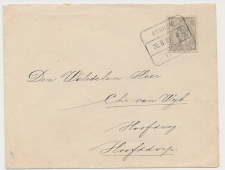 Den Weledelen Heer
Chr. van Wijk
Hoofdweg
Hoofddorp